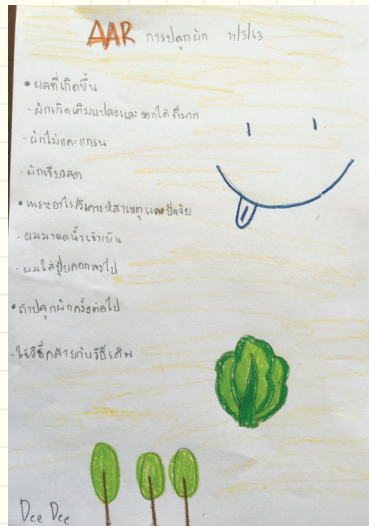 AAR การปลูกผัก 11/3/63
• ผลที่เกิดขึ้น
- ผักเกิดเต็มแปลงและงอกได้ดีมาก
- ผักไม่แคะแกรน
- ผักเขียวสด
• เพราะอะไรวิเคราะห์สาเหตุและปัจจัย
- ผมมารดน้ำเช้าเย็น
- ผมใส่ปุ๋ยคอกลงไป
• ถ้าปลูกผักครั้งต่อไป
- ใช้วิธีคล้ายกับวิธีเดิม
Dee Dee